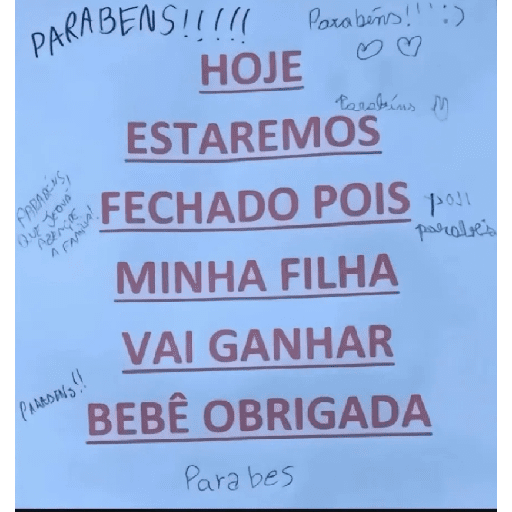 PARABENS!!!!!
Parabéns!!! :)
HOJE
Parabéins
ESTAREMOS
PARABÉNS,
QUE JEOVÁ
ABENÇOE
A FAMÍLIA!
FECHADO POIS
parabéis
MINHA FILHA
VAI GANHAR
PARABÉNS!!
BEBÊ OBRIGADA
Parabes